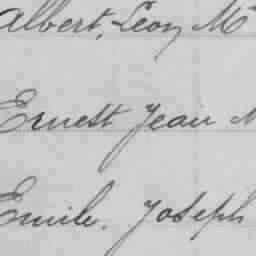 Albert, Léon M
Ernest Jean
Emile. Joseph